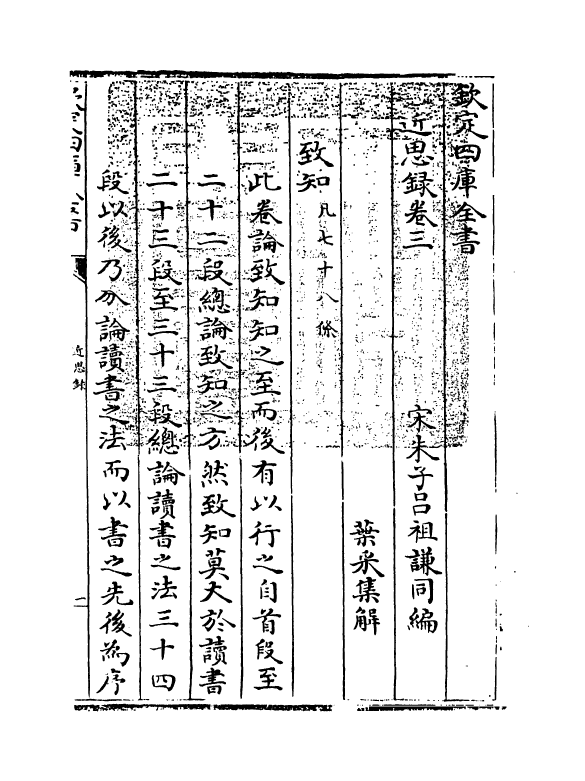 欽定四庫全書
近思録卷三
宋朱子吕祖謙同編
葉采集解
致知凡七十八條
此卷論致知知之至而後有以行之自首段至
二十二段總論致知之方然致知莫大於讀書
二十三段至三十三段總論讀書之法三十四
段以後乃分論讀書之法而以書之先後為序
近思録